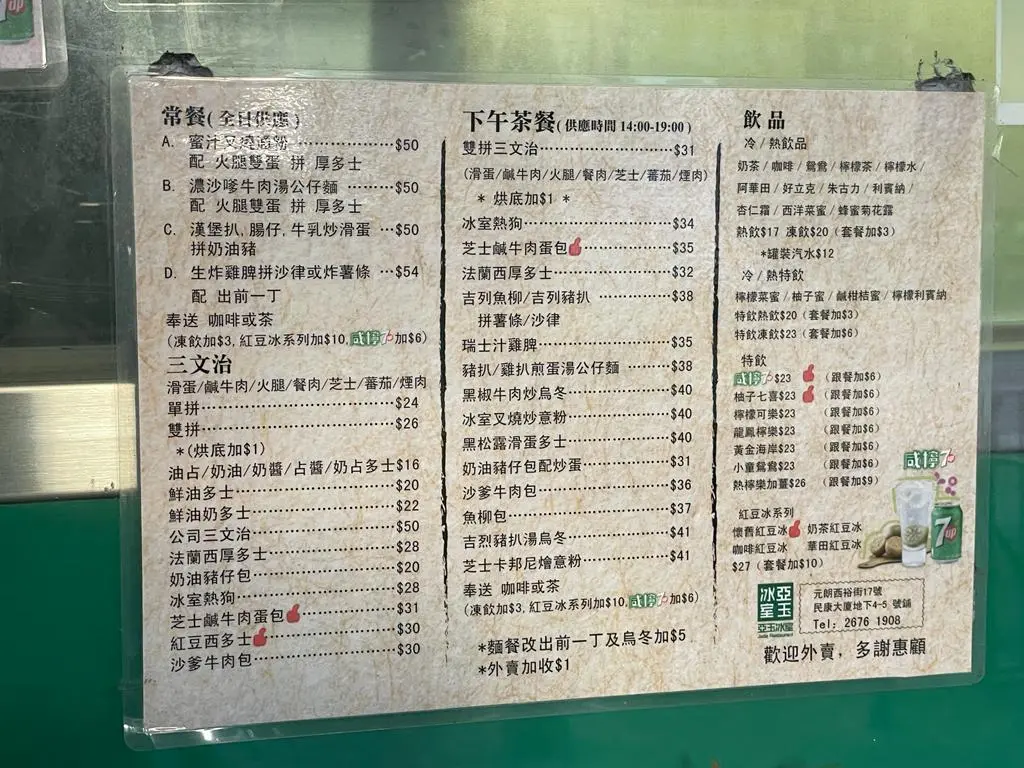 常餐( 全日供應 )
A. 蜜汁叉燒湯粉 $50
配 火腿雙蛋 拼 厚多士
B. 濃沙嗲牛肉湯公仔麵 $50
配 火腿雙蛋 拼 厚多士
C. 漢堡扒, 腸仔, 牛乳炒滑蛋 $50
拼奶油豬
D. 生炸雞脾拼沙律或炸薯條 $54
配 出前一丁
奉送 咖啡或茶
(凍飲加$3, 紅豆冰系列加$10, 咸檸7 加$6)
三文治
滑蛋/鹹牛肉/火腿/餐肉/芝士/蕃茄/煙肉
單拼 $24
雙拼 $26
*(烘底加$1)
油占/奶油/奶醬/占醬/奶占多士$16
鮮油多士 $20
鮮油奶多士 $22
公司三文治 $50
法蘭西厚多士 $28
奶油豬仔包 $20
冰室熱狗 $28
芝士鹹牛肉蛋包 $31
紅豆西多士 $30
沙爹牛肉包 $30
下午茶餐( 供應時間 14:00-19:00 )
雙拼三文治 $31
(滑蛋/鹹牛肉/火腿/餐肉/芝士/蕃茄/煙肉)
* 烘底加$1 *
冰室熱狗 $34
芝士鹹牛肉蛋包 $35
法蘭西厚多士 $32
吉列魚柳/吉列豬扒 $38
拼薯條/沙律
瑞士汁雞脾 $35
豬扒/雞扒煎蛋湯公仔麵 $38
黑椒牛肉炒烏冬 $40
冰室叉燒炒意粉 $40
黑松露滑蛋多士 $40
奶油豬仔包配炒蛋 $31
沙爹牛肉包 $36
魚柳包 $37
吉烈豬扒湯烏冬 $41
芝士卡邦尼燴意粉 $41
奉送 咖啡或茶
(凍飲加$3, 紅豆冰系列加$10, 咸檸7 加$6)
*麵餐改出前一丁及烏冬加$5
*外賣加收$1
飲品
冷 / 熱飲品
奶茶 / 咖啡 / 鴛鴦 / 檸檬茶 / 檸檬水 /
阿華田 / 好立克 / 朱古力 / 利賓納 /
杏仁霜 / 西洋菜蜜 / 蜂蜜菊花露
熱飲$17 凍飲$20 (套餐加$3)
*罐裝汽水$12
冷 / 熱特飲
檸檬菜蜜 / 柚子蜜 / 鹹柑桔蜜 / 檸檬利賓納
特飲熱飲$20 (套餐加$3)
特飲凍飲$23 (套餐加$6)
特飲
咸檸7 $23 (跟餐加$6)
柚子七喜$23 (跟餐加$6)
檸檬可樂$23 (跟餐加$6)
龍鳳檸樂$23 (跟餐加$6)
黃金海岸$23 (跟餐加$6)
小童鴛鴦$23 (跟餐加$6)
熱檸樂加薑$26 (跟餐加$9)
咸檸7
7up
紅豆冰系列
懷舊紅豆冰 奶茶紅豆冰
咖啡紅豆冰 華田紅豆冰
$27 (套餐加$10)
亞玉冰室
亞玉冰室
Jade Restaurant
元朗西裕街17號
民康大廈地下4-5 號鋪
Tel: 2676 1908
歡迎外賣, 多謝惠顧